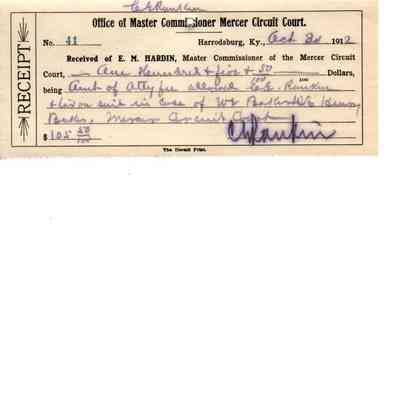 C E Rankin
Office of Master Commissioner Mercer Circuit Court.
No. 41 Harrodsburg, Ky., Oct 1912
RECEIPT
Received of E. M. HARDIN, Master Commissioner of the Mercer Circuit
Court, One Hundred & five & 50/100 Dollars,
being Amt of Atty fee allowed C. E. Rankin
suit in case of
Mercer Circuit Court
$ 105 50/100 C E Rankin
The Herald Print.